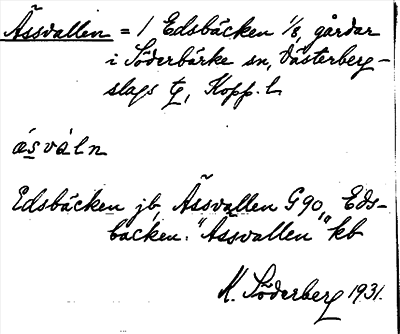 Åssvallen = 1 Edsbäcken 1/8, gårdar
i Söderbärke sn, Västerberg-
slags tg, Kopp. l.
åsváln
Edsbäcken jb, Åssvallen G90, Eds-
backen "Åssvallen" kb
K. Söderberg 1931.